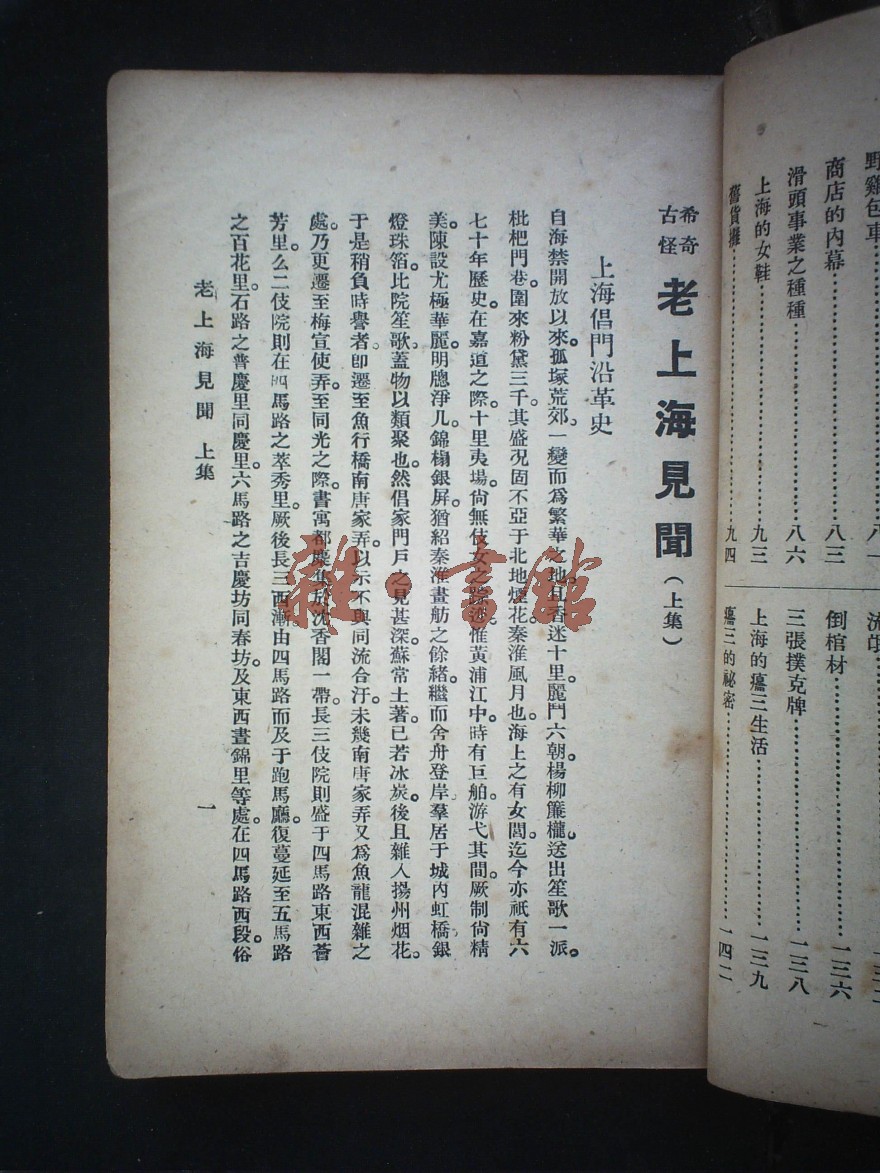 野雞包車
八一
商店的內幕
八三
滑頭事業之種種
八六
上海的女鞋
九三
舊貨攤
九四
倒棺材
一三六
三張撲克牌
一三八
上海的癟三生活
一三九
癟三的祕密
一四二
希奇古怪 老上海見聞(上集)
上海倡門沿革史
自海禁開放以來。孤塚荒郊。一變而爲繁華之地。且香迷十里。麗鬥六朝。楊柳簾櫳。送出笙歌一派。
枇杷門巷。圍來粉黛三千。其盛况固不亞于北地煙花。秦淮風月也。海上之有女閭。迄今亦祇有六
七十年歷史。在嘉道之際。十里夷場。尙無伎女之踪迹。惟黃浦江中。時有巨舶。游弋其間。厥制尙精
美。陳設尤極華麗。明牕淨几。錦榻銀屏。猶紹秦淮畫舫之餘緖。繼而舍舟登岸。羣居于城內虹橋。銀
燈珠箔。比院笙歌。蓋物以類聚也。然倡家門戶之見甚深。蘇常土著。已若冰炭。後且雜入揚州烟花。
于是稍負時譽者。卽遷至魚行橋南唐家弄。以示不與同流合汙。未幾南唐家弄又爲魚龍混雜之
處。乃更遷至梅宣使弄。至同光之際。書寓都麕集於沈香閣一帶。長三伎院則盛于四馬路東西薈
芳里。么二伎院則在四馬路之萃秀里。厥後長三西漸由四馬路而及于跑馬廳。復蔓延至五馬路
之百花里。石路之普慶里。同慶里。六馬路之吉慶坊。同春坊。及東西晝錦里等處。在四馬路西段俗
老上海見聞 上集
一
雜·書館